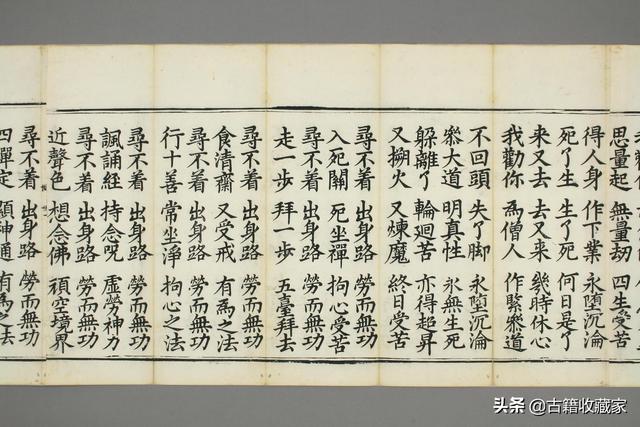 思量起 無量劫 四生受苦
得人身 作下業 永墮沉淪
死了生 生了死 何日是了
來又去 去又來 幾時休心
我勸你 爲僧人 作緊叅道
不回頭 失了脚 永墮沉淪
叅大道 明真性 永無生死
躲離了 輪廻苦 亦得超昇
又搠火 又煉魔 終日受苦
尋不着 出身路 勞而無功
入死關 死坐禪 拘心受苦
尋不着 出身路 勞而無功
走一步 拜一步 五臺拜去
尋不着 出身路 勞而無功
食清齋 又受戒 有爲之法
尋不着 出身路 勞而無功
行十善 常坐淨 拘心之法
尋不着 出身路 勞而無功
諷誦経 持念呪 虛勞神力
尋不着 出身路 勞而無功
近聲色 想念佛 頑空境界
尋不着 出身路 勞而無功
四禪定 顯神通 有爲之法
头条 @古籍收藏家